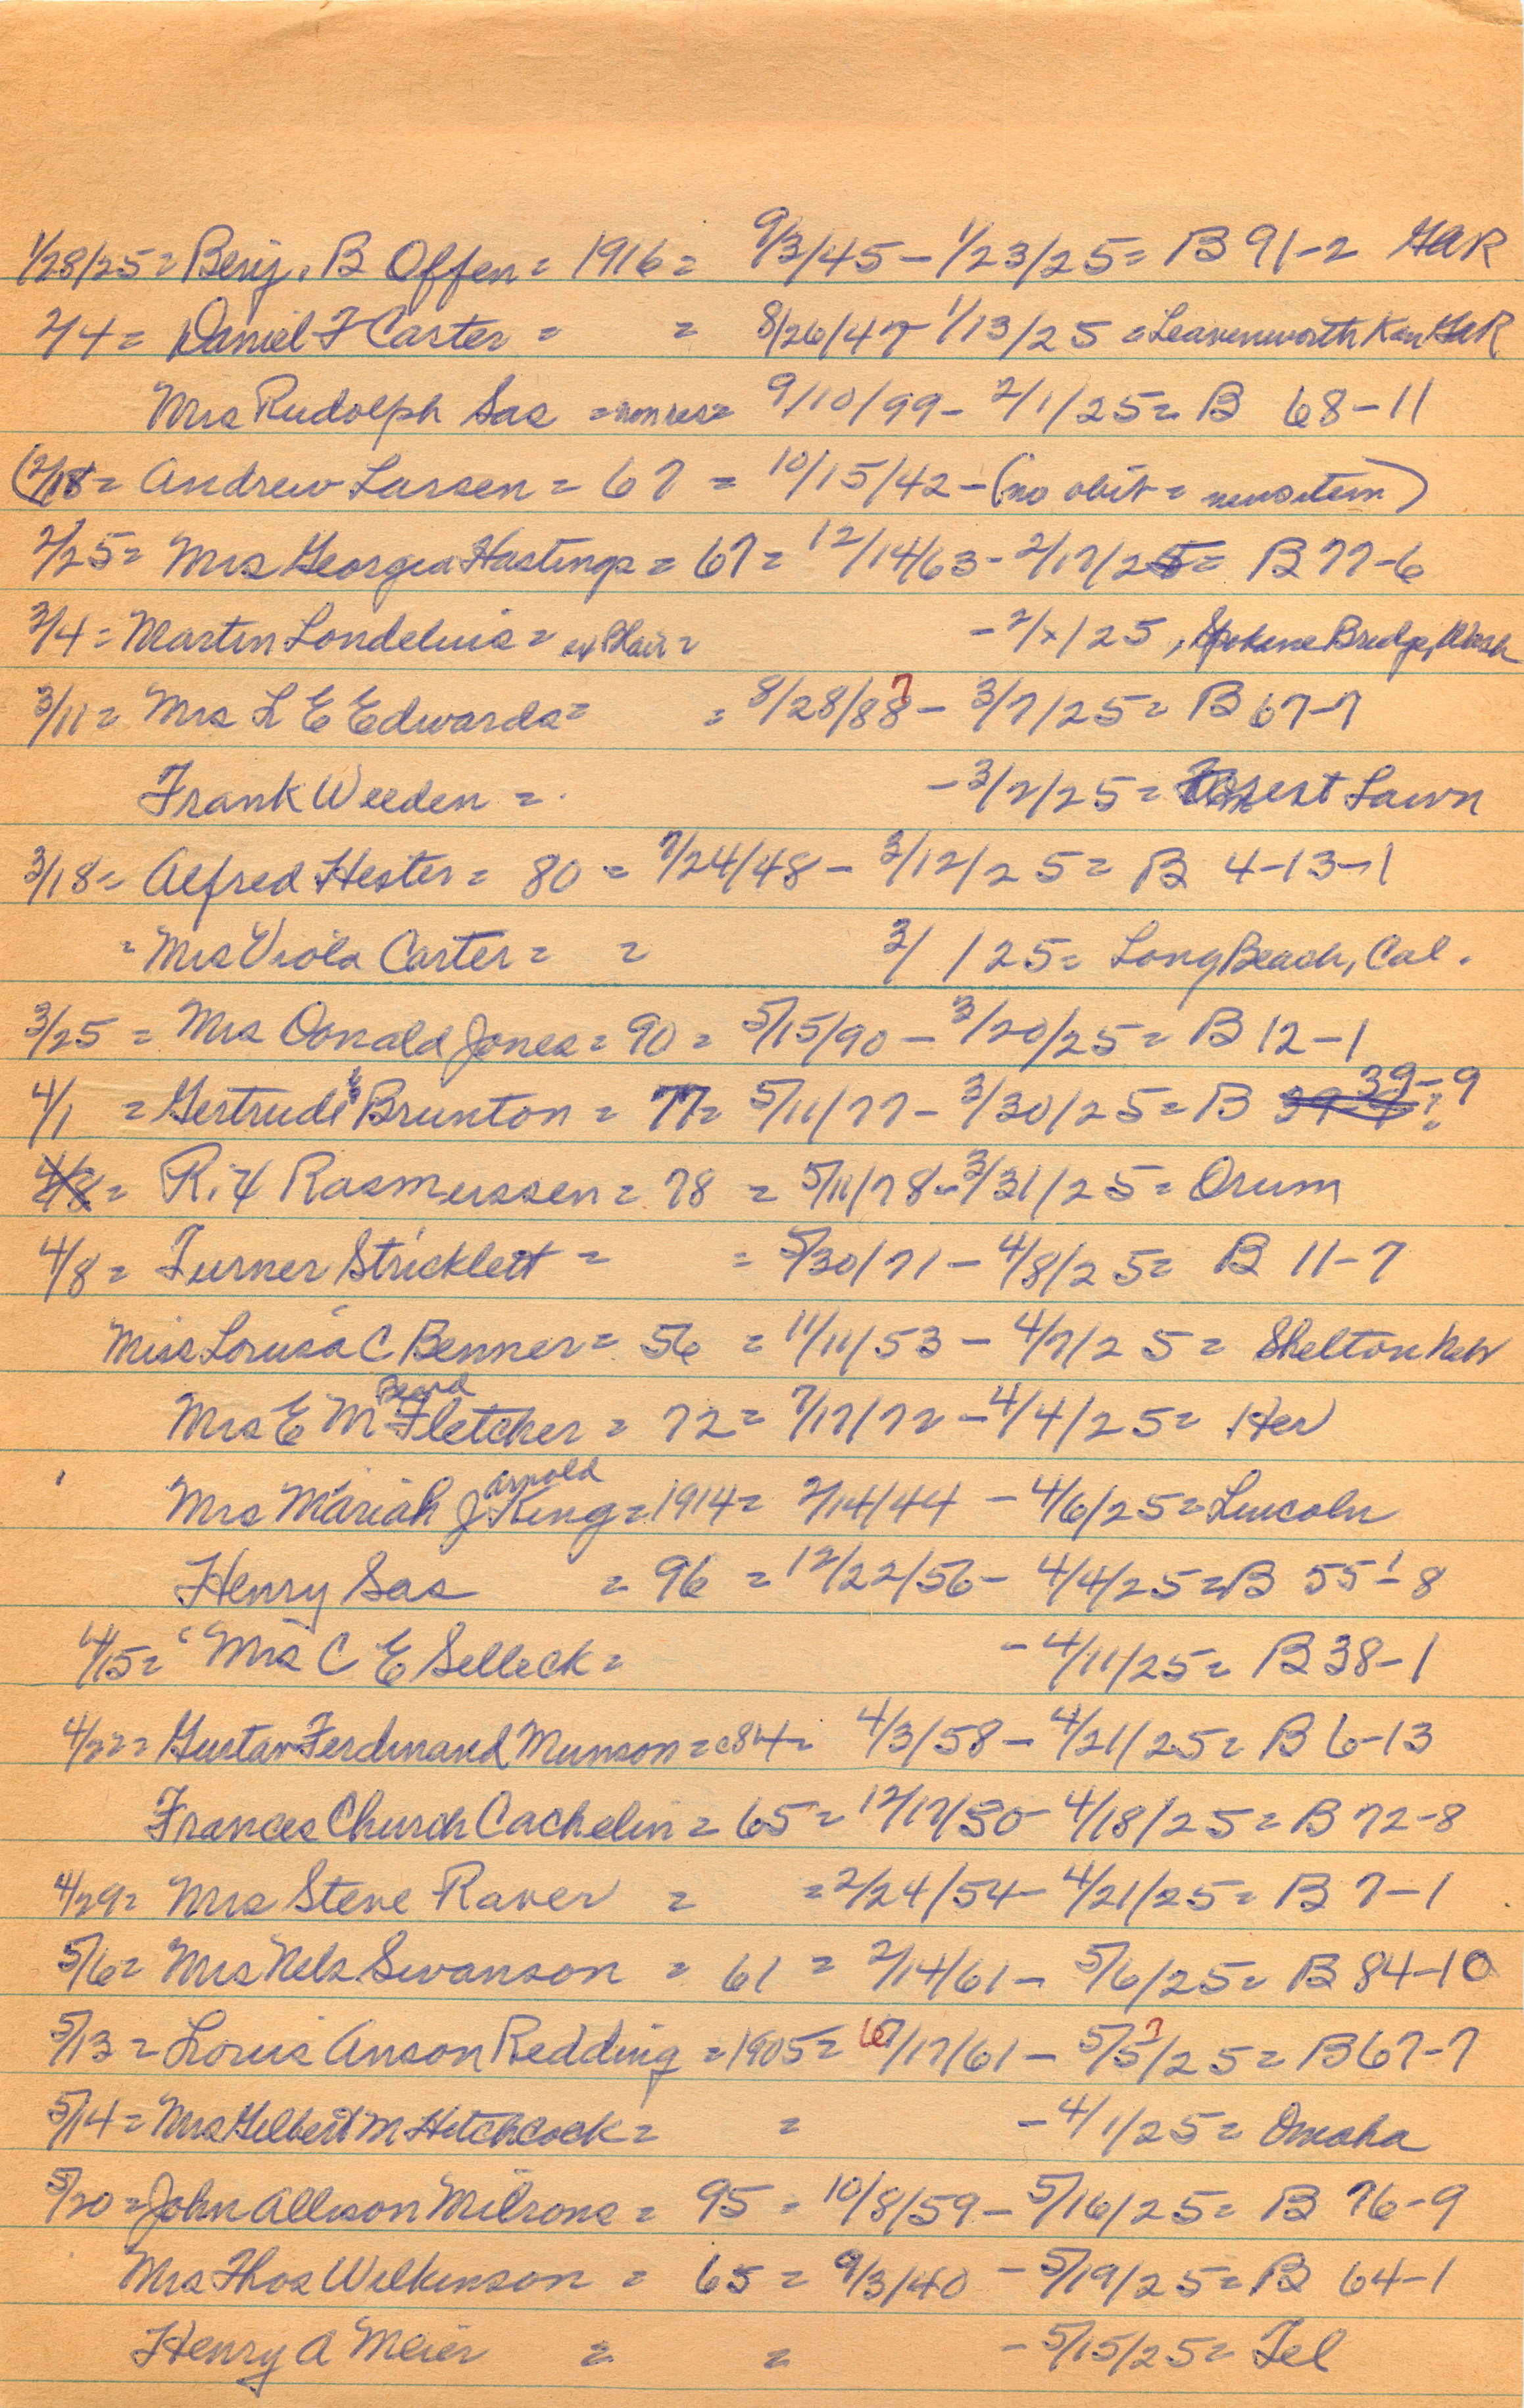 1/28/25 = Benj. B Offen = 1916 = 9/3/45 - 1/23/25 = B 91-2 GAR
2/4 = Daniel F Carter = = 8/26/47 - 1/13/25 = Leavenworth Kan GAR
Mrs Rudolph Sas = non res = 9/10/99 - 2/1/25 = B 68-11
(2/18 = Andrew Larsen = 67 = 10/15/42 - (no obit = news item)
2/25 = Mrs Georgia Hastings = 67 = 12/14/63 - 2/17/25 = B 77-6
3/4 = Martin Londelius = ex Blair = - 2/x/25, Spokane Bridge, Wash
3/11 = Mrs L E Edwards = = 8/28/88? - 3/7/25 = B 67-7
Frank Weeden = - 3/2/25 = Forest Lawn
3/18 = Alfred Hester = 80 = 7/24/48 - 3/12/25 = B 4-13-1
= Mrs Viola Carter = = 3/ /25 = Long Beach, Cal.
3/25 = Mrs Donald Jones = 90 = 5/15/90 - 3/20/25 = B 12-1
4/1 = Gertrude Brunton = 77 = 5/11/77 - 3/30/25 = B 39-9
4/8 = R. H Rasmussen = 78 = 5/11/78 - 3/31/25 = Orum
4/8 = Turner Stricklett = = 5/30/71 - 4/8/25 = B 11-7
Miss Louisa C Benner = 56 = 11/11/53 - 4/7/25 = Shelton Neb
Mrs E M Beard Fletcher = 72 = 7/17/72 - 4/4/25 = Her
Mrs Mariah J Arnold King = 1914 = 2/14/44 - 4/6/25 = Lincoln
Henry Sas = 96 = 12/22/56 - 4/4/25 = B 55-8
4/15 = Mrs C E Selleck = - 4/11/25 = B 38-1
4/22 = Gustav Ferdinand Munson = c84 = 4/3/58 - 4/21/25 = B 6-13
Frances Church Cachelin = 65 = 12/17/50 - 4/18/25 = B 72-8
4/29 = Mrs Steve Raver = = 2/24/54 - 4/21/25 = B 7-1
5/6 = Mrs Nels Swanson = 61 = 2/14/61 - 5/6/25 = B 84-10
5/13 = Louis Anson Redding = 1905 = 6/17/61 - 5/5?/25 = B 67-7
5/14 = Mrs Gilbert M Hitchcock = = - 4/1/25 = Omaha
5/20 = John Allison Milrons = 95 = 10/8/59 - 5/16/25 = B 76-9
Mrs Thos Wilkinson = 65 = 9/3/40 - 5/19/25 = B 64-1
Henry A Meier = = - 5/15/25 = Tel